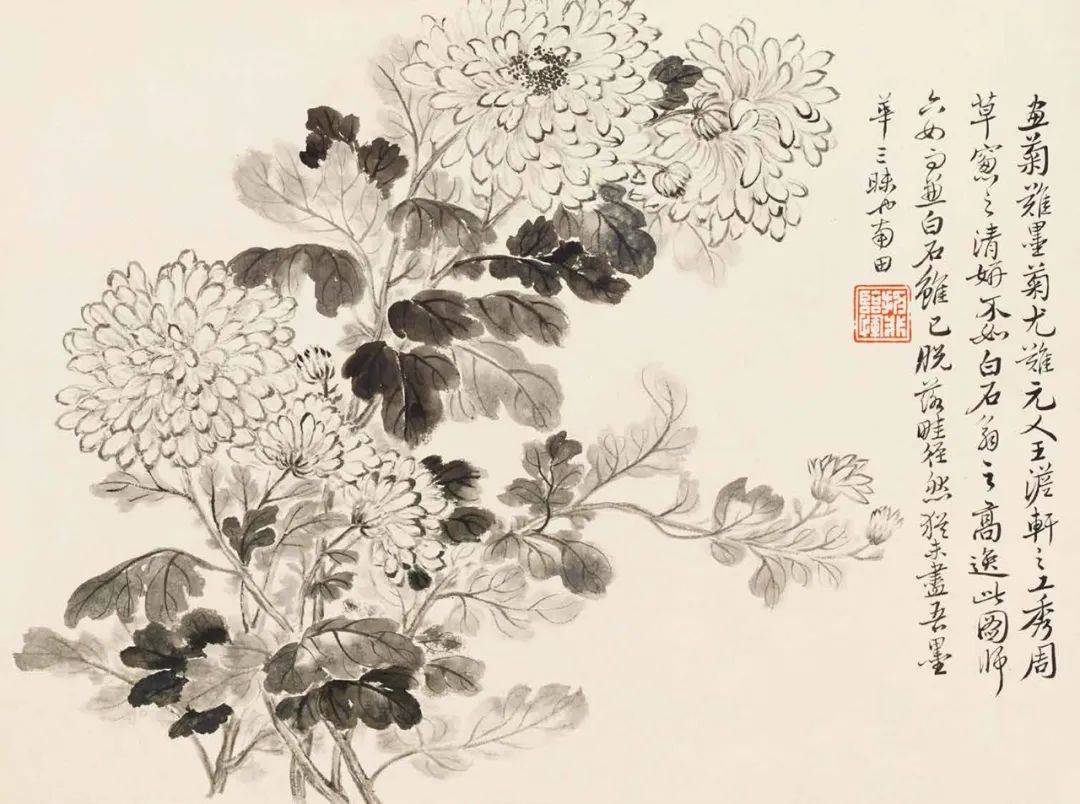 畫菊難墨菊尤難元人王澹軒之工秀周
草窻之清妍不如白石翁之高逸此圖師
六如而兼白石雖已脱落畦徑然猶未盡吾墨
華三昧也南田